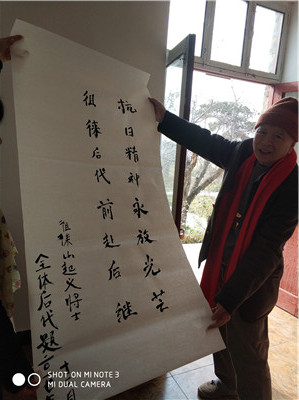 抗日精神永放光芒
徂徕后代前赴后继
徂徕山起义将士
全体后代题
SHOT ON MI NOTE 3
MI DUAL CAMERA